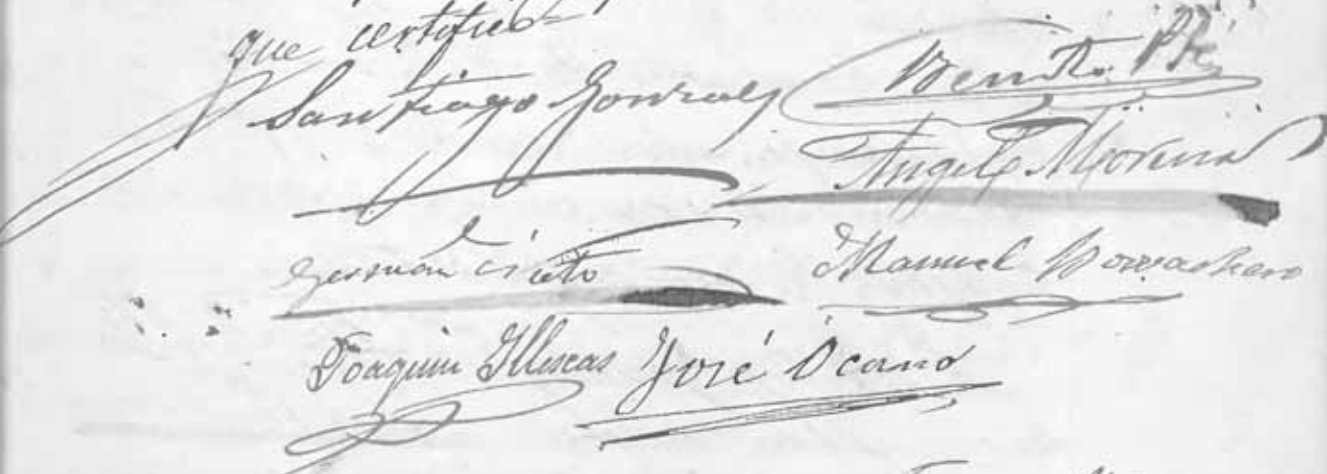 que certifico
Santiago Gonzalez Benito
Angel Moreno
German Manuel
Joaquin Illescas José Ocano